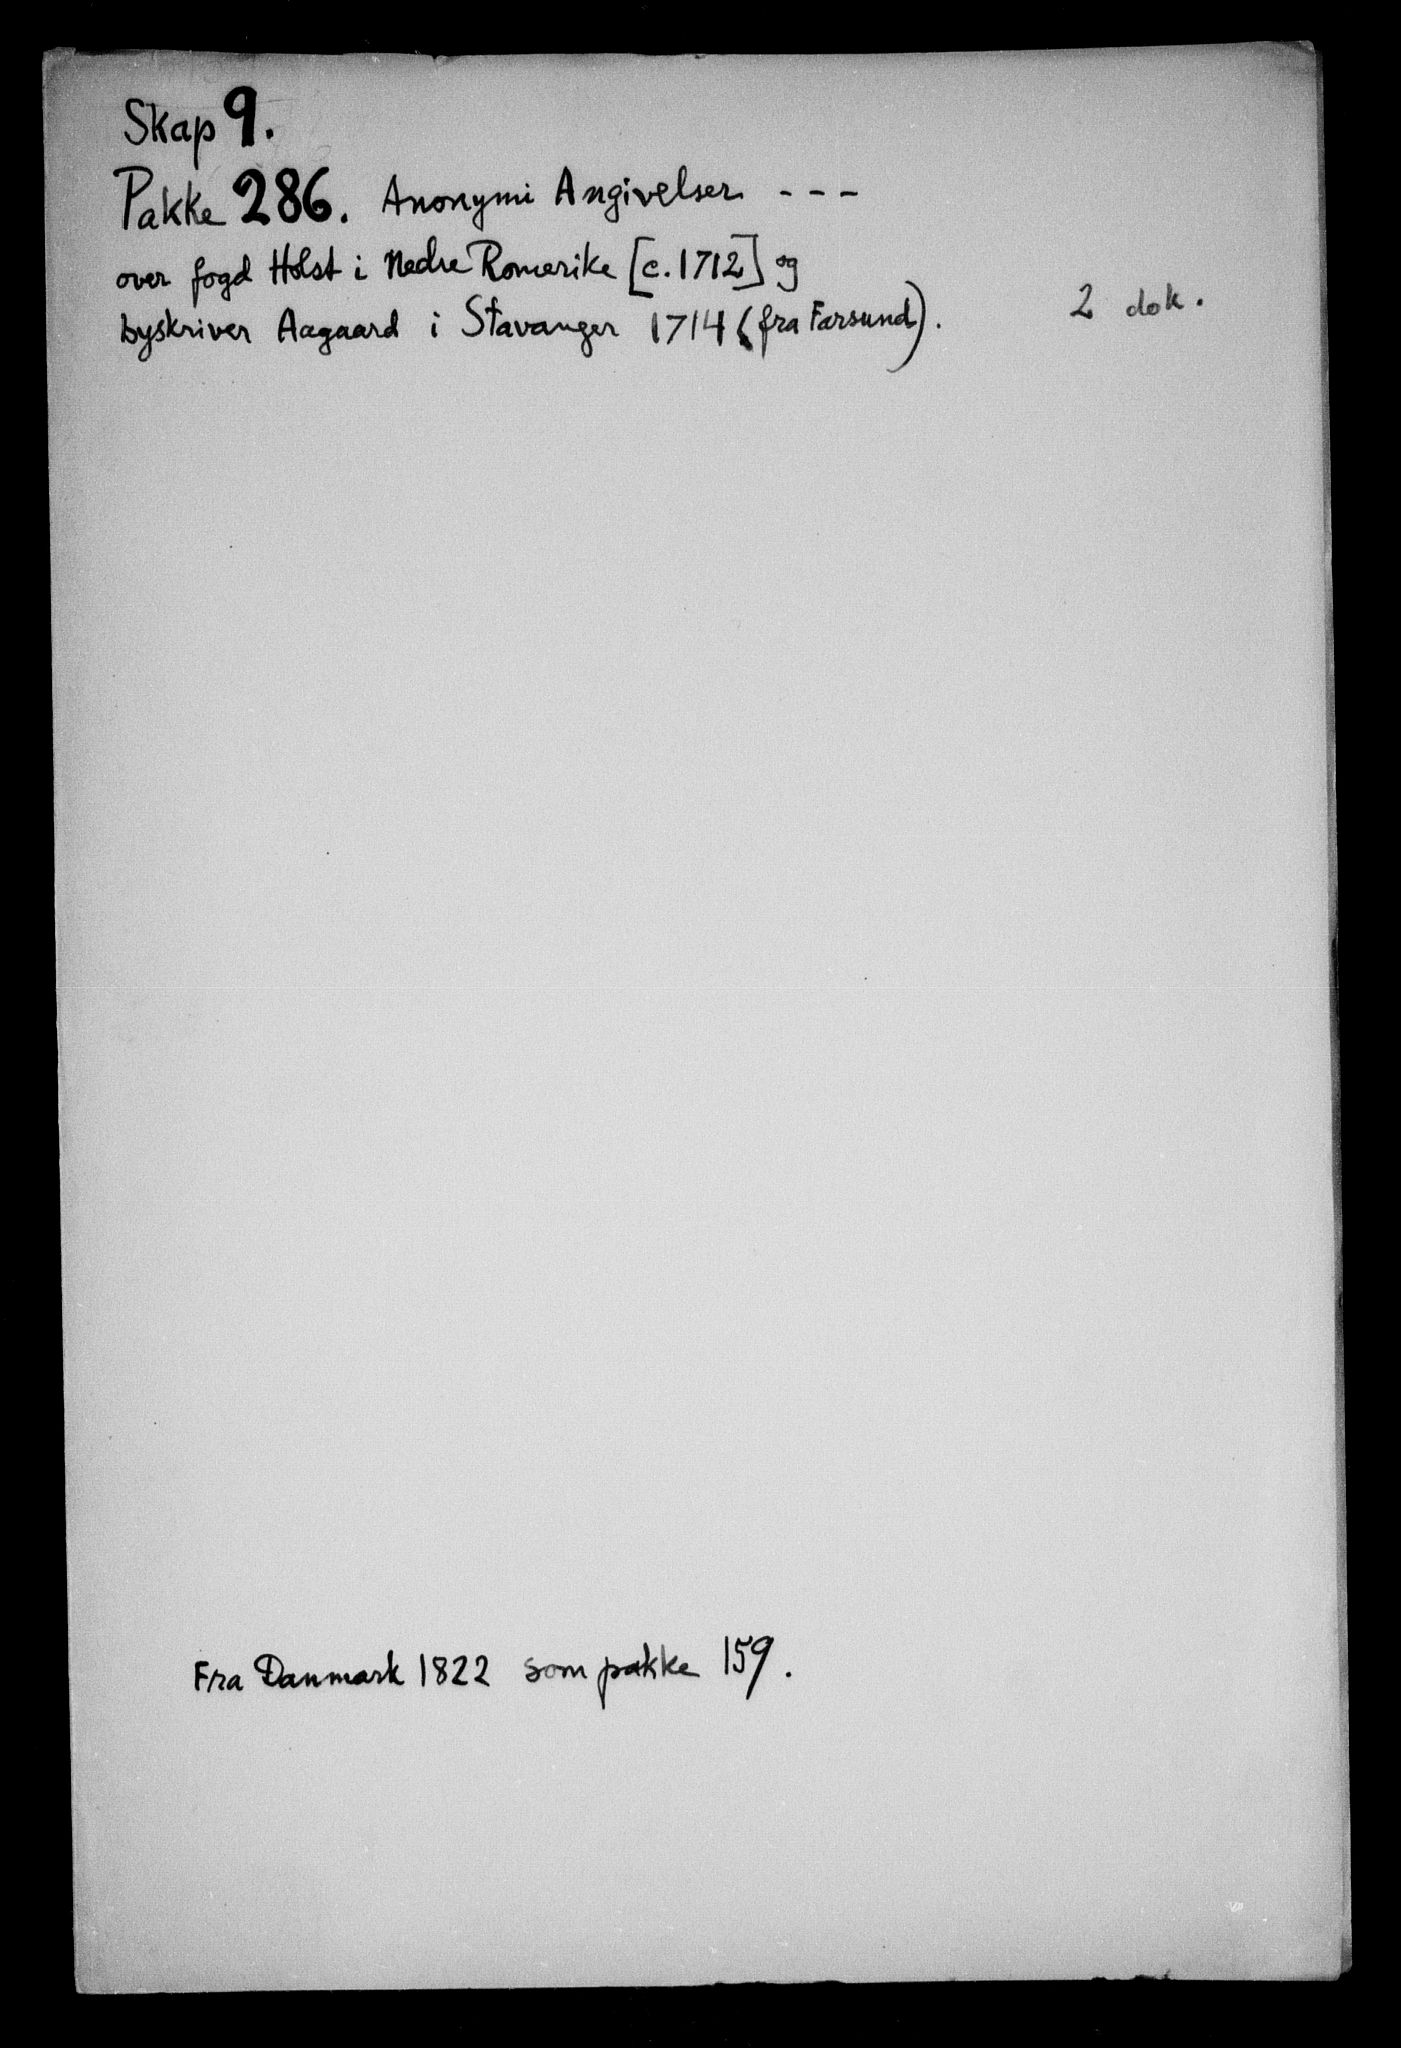 Skap 9.
Pakke 286. Anonymi Angivelser - - -
over fogd Holst i Nedre Romerike [c. 1712] og
byskriver Aagaard i Stavanger 1714 (fra Farsund). 2 dok.
Fra Danmark 1822 som pakke 159.